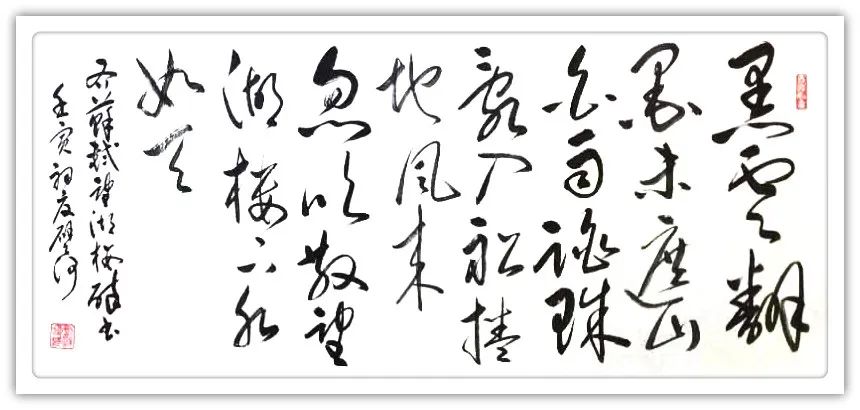 黑雲翻
墨未遮山
白雨跳珠
亂入船捲
地風来
忽吹散望
湖楼下水
如天
蘇軾望湖楼醉书
壬寅初夏